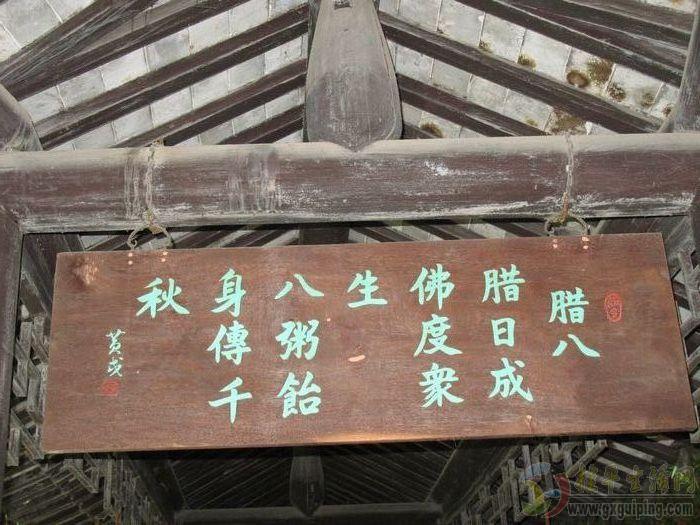 腊八
腊日成
佛度衆
生
八粥飴
身傳千
秋
www.gxguiping.com